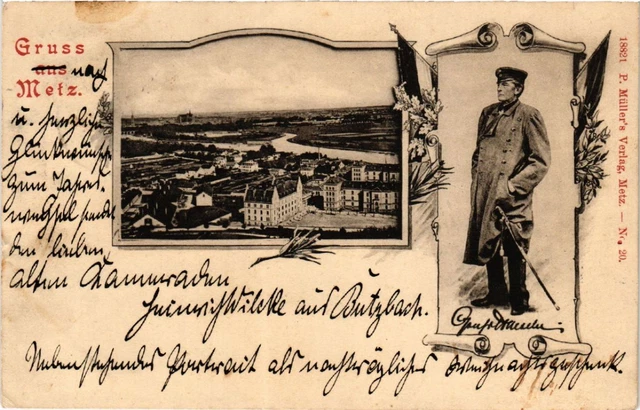 Gruss
aus nach
Metz.
u. herzliche
Glückwünsche
zum Jahres-
wechsel sendet
den lieben
alten Kameraden
Heinrich Wilcke aus Butzbach.
Nebenstehendes Portrait als nachträgliches Weihnachtsgeschenk.
18821 P. Müller's Verlag, Metz. — No. 20.